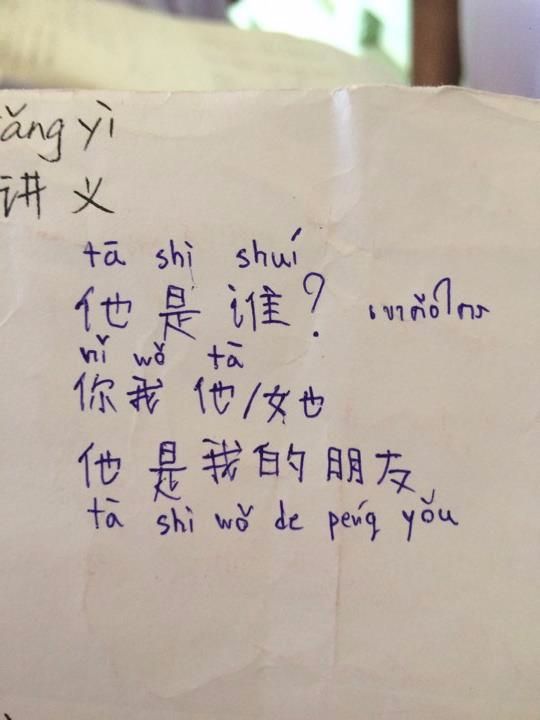 ǎng yì
讲 义
tā shì shuí
他 是 谁? เขาคือใคร
nǐ wǒ tā
你我 他/她
他 是 我 的 朋 友
tà shì wǒ de péng yǒu